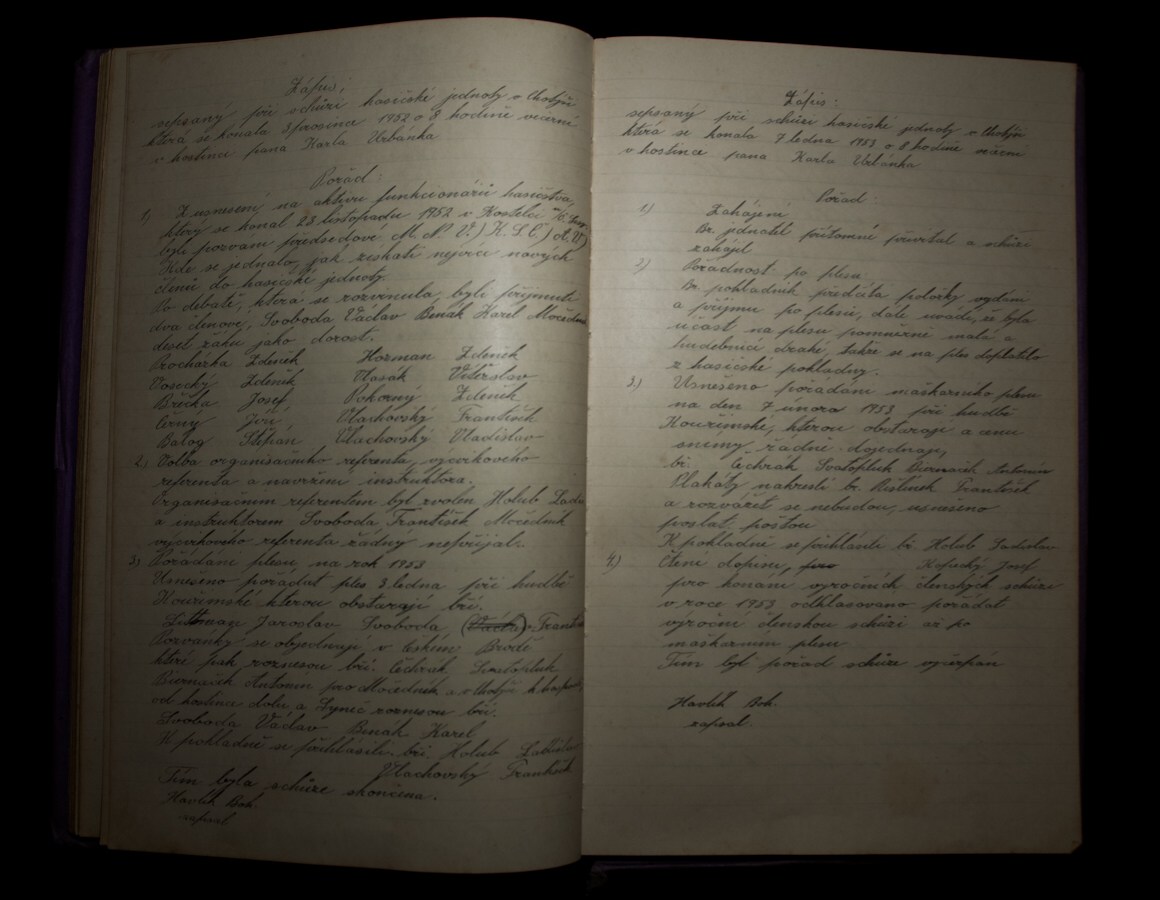 Zápis;
sepsaný při schůzi hasičské jednoty v Chotýši
která se konala 3 prosince 1952 o 8 hodině večerní
v hostinci pana Karla Urbánka
Pořad:
1) Z usnesení na aktivu funkcionářů hasičstva,
který se konal 23 listopadu 1952 v Kostelci n/Č.
byli pozvani předsedové M. N. V.) K. S. Č.)
Kde se jednalo, jak získati nejvíce nových
členů do hasičské jednoty.
Po debatě, která se rozvinula, byli přijmuti
dva členové, Svoboda Václav Binák Karel Močedník
deset žáků jako dorost.
Procházka Zdeněk Hozman Zdeněk
Vosecký Zdeněk Vlasák Vítězslav
Břečka Josef Pokorný Zdeněk
Černý Jiří Vlachovský František
Balog Štěpán Vlachovský Vladislav
2) Volba organisačního referenta, výcvikového
referenta a navržení instruktora.
Organisačním referentem byl zvolen Holub Ladis
a instruktorem Svoboda František Močedník
výcvikového referenta žádný nepřijal.
3) Pořádání plesu, na rok 1953
Usnešeno pořádat ples 3 ledna při hudbě
Kouřimské kterou obstarají bří.
Littman Jaroslav Svoboda (Václav) Františ
Pozvánky se objednají v Českém Brodě
které pak roznesou bří. Čechrák Svatopluk
Biernačík Antonín pro Močedník a v Chotýši k
od hostince dolu a Lyneč roznesou bří.
Svoboda Václav Binák Karel
K pokladně se přihlásili bří. Holub Ladislav
Vlachovský František
Tím byla schůze skončena.
Havlík Boh.
zapsal
Zápis:
sepsaný při schůzi hasičské jednoty v Chotýši
která se konala 7 ledna 1953 o 8 hodině večerní
v hostince pana Karla Urbánka
Pořad:
1) Zahájení
Br. jednatel přítomné přivítal a schůzi
zahájil
2) Pořádnost po plesu
Br. pokladník předčítá položky vydání
a příjmu po plesu, dále uvádí, že byla
účast na plesu poměrně malá a
hudebníci drahé, takže se na ples doplatilo
z hasičské pokladny.
3.) Usnešeno pořádání maškarního plesu
na den 7 února 1953 při hudbě
Kouřimské, kterou obstarají a cenu
snimy řádně dojednají,
bř. Čechrák Svatopluk Biernačík Antonín
Plakáty nakreslí br. Ristinek František
a rozvážet se nebudou, usnešeno
poslat poštou
K pokladně se přihlásili bř. Holub Ladislav
Kopecký Josef
4.) Čtení dopisu, pro
pro konání výročních členských schůzí
v roce 1953 odhlasováno pořádat
výroční členskou schůzi až po
maškarním plesu
Tím byl pořad schůze vyčerpán
Havlík Boh.
zapsal.